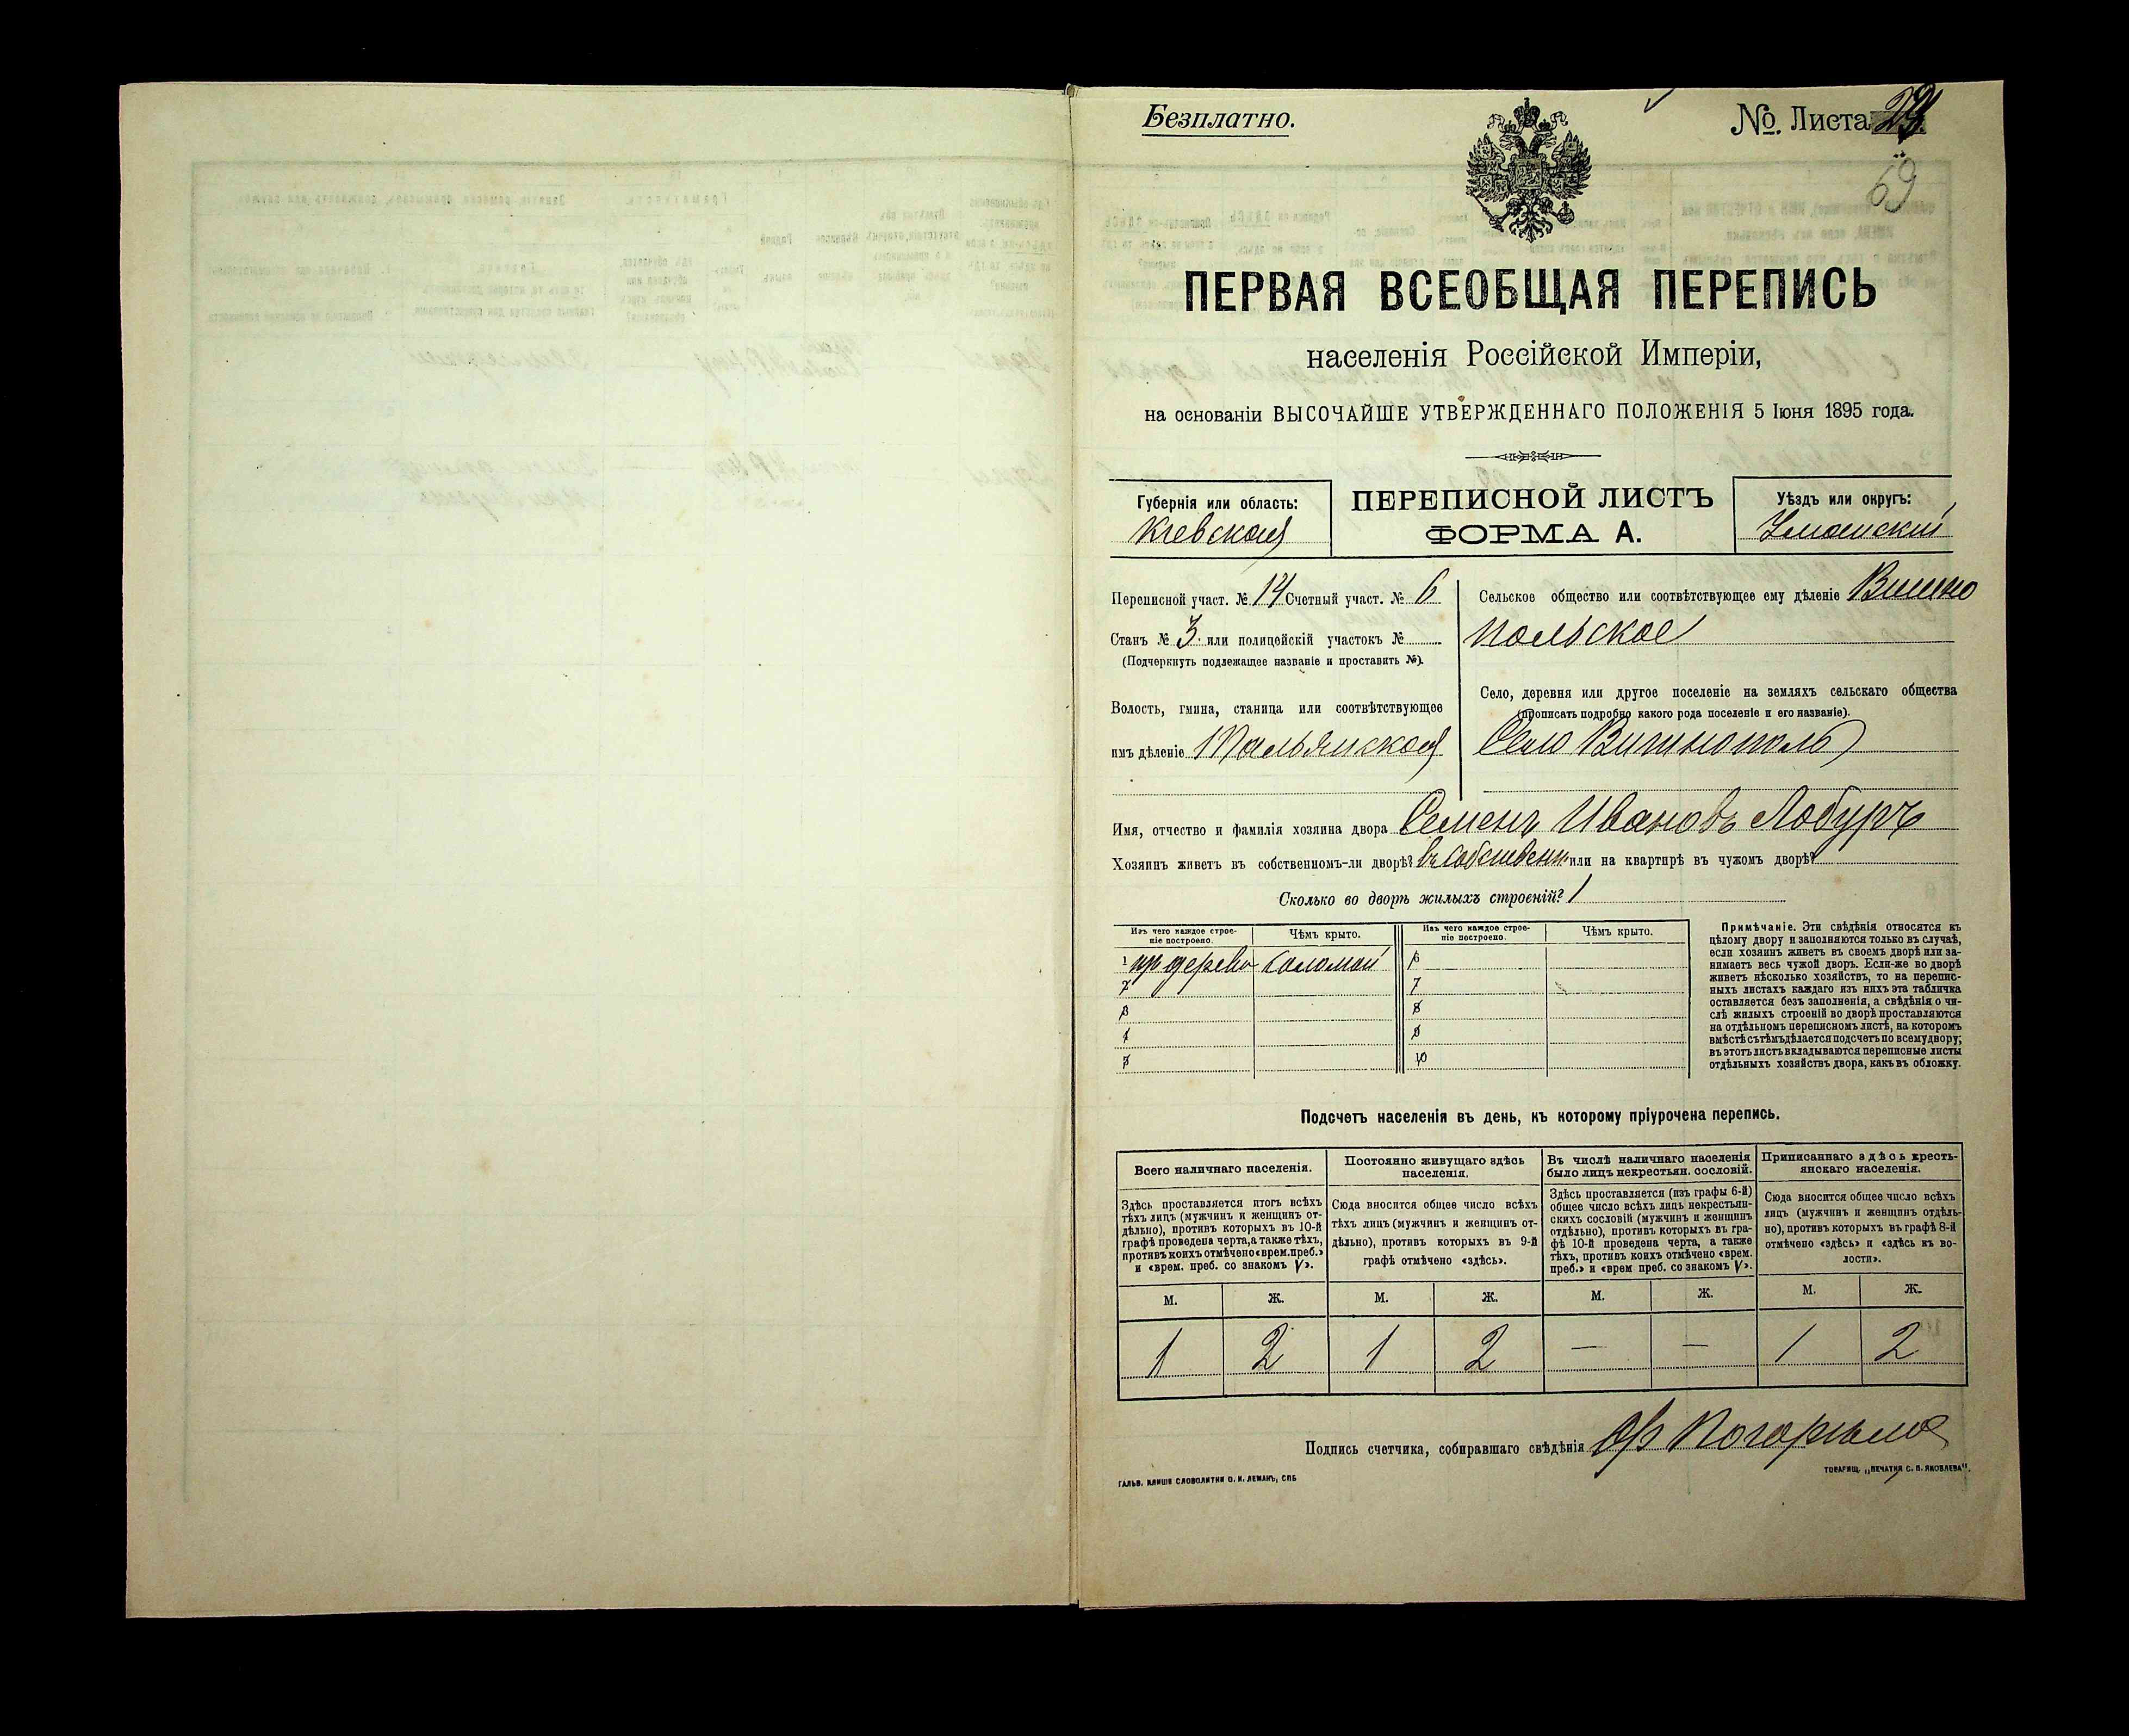 Безплатно.
№ Листа
69
ПЕРВАЯ ВСЕОБЩАЯ ПЕРЕПИСЬ
населенія Россійской Имперіи,
на основаніи ВЫСОЧАЙШЕ УТВЕРЖДЕННАГО ПОЛОЖЕНІЯ 5 Іюня 1895 года.
Губернія или область:
Кіевская
ПЕРЕПИСНОЙ ЛИСТЪ
ФОРМА А.
Уѣздъ или округъ:
Уманскій
Переписной участ. № 14 Счетный участ. № 6
Станъ № 3 или полицейскій участокъ №
(Подчеркнуть подлежащее названіе и проставить №).
Волость, гмина, станица или соотвѣтствующее
имъ дѣленіе Тальянская
Сельское общество или соотвѣтствующее ему дѣленіе Вишно
польское
Село, деревня или другое поселеніе на земляхъ сельскаго общества
(прописать подробно какого рода поселеніе и его названіе).
Село Вишнополь
Имя, отчество и фамилія хозяина двора Семенъ Ивановъ Лобуръ
Хозяинъ живетъ въ собственномъ-ли дворѣ? въ собственн. или на квартирѣ въ чужомъ дворѣ?
Сколько во дворѣ жилыхъ строеній? 1
Изъ чего каждое строе-
ніе построено.
Чѣмъ крыто.
Изъ чего каждое строе-
ніе построено.
Чѣмъ крыто.
1 дерева соломой
6
2
7
3
8
4
9
5
10
Примѣчаніе. Эти свѣдѣнія относятся къ
цѣлому двору и заполняются только въ случаѣ,
если хозяинъ живетъ въ своемъ дворѣ или за-
нимаетъ весь чужой дворъ. Если-же во дворѣ
живетъ нѣсколько хозяйствъ, то на перепис-
ныхъ листахъ каждаго изъ нихъ эта табличка
оставляется безъ заполненія, а свѣдѣнія о чи-
слѣ жилыхъ строеній во дворѣ проставляются
на отдѣльномъ переписномъ листѣ, на которомъ
вмѣстѣ съ тѣмъ дѣлается подсчетъ по всему двору;
въ этотъ листъ вкладываются переписные листы
отдѣльныхъ хозяйствъ двора, какъ въ обложку.
Подсчетъ населенія въ день, къ которому пріурочена перепись.
Всего наличнаго населенія.
Здѣсь проставляется итогъ всѣхъ
тѣхъ лицъ (мужчинъ и женщинъ от-
дѣльно), противъ которыхъ въ 10-й
графѣ проведена черта, а также тѣхъ,
противъ коихъ отмѣчено «врем. преб.»
и «врем. преб. со знакомъ V».
Постоянно живущаго здѣсь
населенія.
Сюда вносится общее число всѣхъ
тѣхъ лицъ (мужчинъ и женщинъ от-
дѣльно), противъ которыхъ въ 9-й
графѣ отмѣчено «здѣсь».
Въ числѣ наличнаго населенія
было лицъ некрестьян. сословій.
Здѣсь проставляется (изъ графы 6-й)
общее число всѣхъ лицъ некрестьян-
скихъ сословій (мужчинъ и женщинъ
отдѣльно), противъ которыхъ въ гра-
фѣ 10-й проведена черта, а также
тѣхъ, противъ коихъ отмѣчено «врем.
преб.» и «врем преб. со знакомъ V».
Приписаннаго здѣсь кресть-
янскаго населенія.
Сюда вносится общее число всѣхъ
лицъ (мужчинъ и женщинъ отдѣль-
но), противъ которыхъ въ графѣ 8-й
отмѣчено «здѣсь» и «здѣсь къ во-
лости».
М. Ж. М. Ж. М. Ж. М. Ж.
1 2 1 2 — — 1 2
Подпись счетчика, собиравшаго свѣдѣнія
ГАЛЬВ. КЛИШЕ СЛОВОЛИТНИ О. И. ЛЕМАНЪ, СПБ
ТОВАРИЩ. „ПЕЧАТНЯ С. П. ЯКОВЛЕВА".